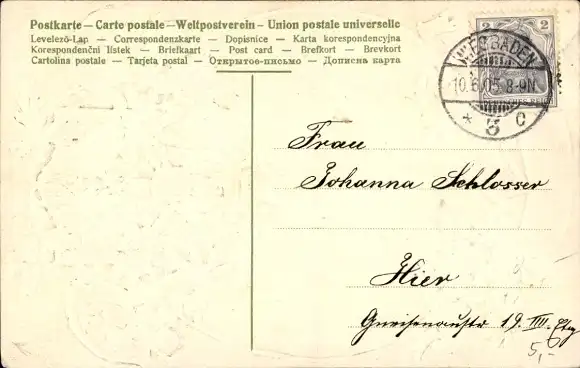 Postkarte — Carte postale — Weltpostverein — Union postale universelle
Levelező-Lap — Correspondenzkarte — Dopisnice — Karta korespondencyjna
Korespondenční lístek — Briefkaart — Post card — Brefkort — Brevkort
Cartolina postale — Tarjeta postal — Открытое-письмо — Дописна карта
2 2
WIESBADEN
10.6.05. 8-9N.
* 3 c
Frau
Johanna Schlosser
Hier
Gneisenaustr 19. III. Etg
5,-